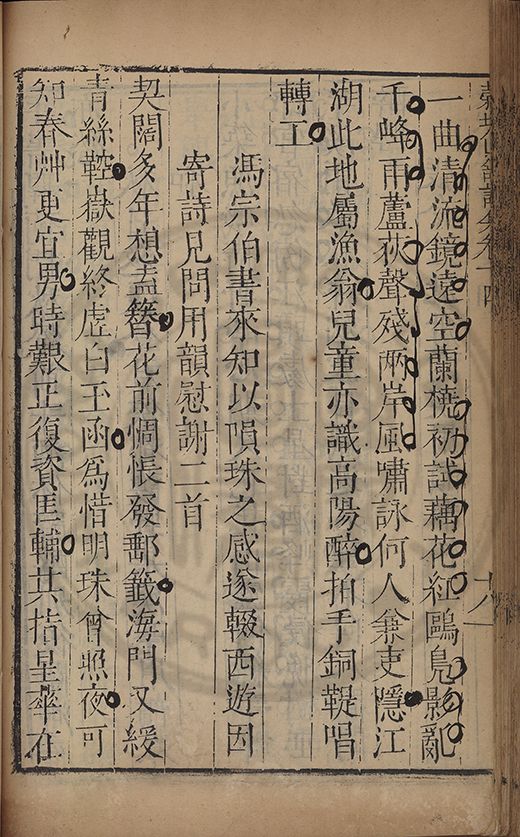 一曲清流鏡遠空蘭橈初試藕花紅鷗鳧影亂
千峰雨蘆荻聲殘兩岸風嘯詠何人兼吏隱江
湖此地屬漁翁兒童亦識高陽醉拍手銅鞮唱
轉工
馮宗伯書來知以隕珠之感遂輟西遊因
寄詩見問用韻慰謝二首
契闊多年想盍簪花前惆悵發郵籤海門又緩
青絲鞚嶽觀終虛白玉函為惜明珠曾照夜可
知春艸更宜男時艱正復資匡輔共指星𠦃在